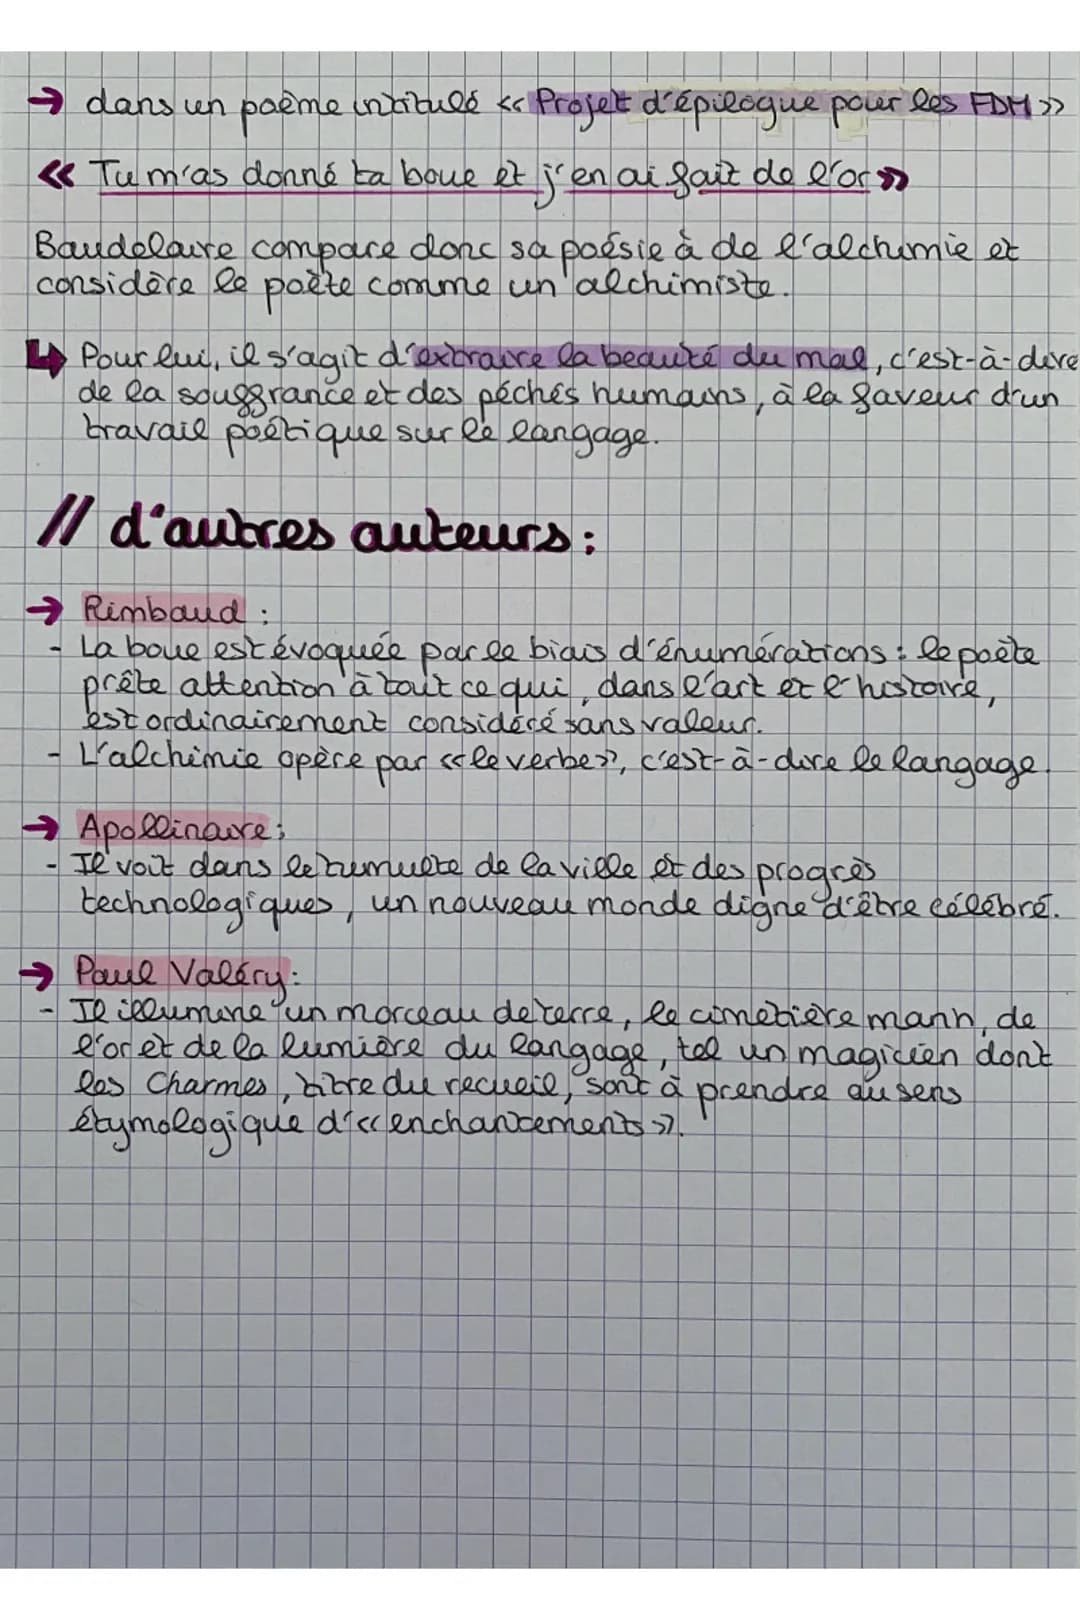 → dans un poème intitulé << Projet d'épilogue pour les FDM >>
<< Tu m'as donné ta boue et j'en ai fait de l'or >>
Baudelaire compare donc sa poésie à de l'alchimie et
considère le poète comme un alchimiste.
↳ Pour lui, il s'agit d'extraire la beauté du mal, c'est-à-dire
de la souffrance et des péchés humains, à la faveur d'un
travail poétique sur le langage.
// d'autres auteurs :
→ Rimbaud :
- La boue est évoquée par le biais d'énumérations : le poète
prête attention à tout ce qui, dans l'art et l'histoire,
est ordinairement considéré sans valeur.
- L'alchimie opère par << le verbe >>, c'est-à-dire le langage.
→ Apollinaire :
- Il voit dans le tumulte de la ville et des progrès
technologiques, un nouveau monde digne d'être célébré.
→ Paul Valéry :
- Il illumine un morceau de terre, le cimetière marin, de
l'or et de la lumière du langage, tel un magicien dont
les Charmes, titre du recueil, sont à prendre au sens
étymologique d'<< enchantements >>.